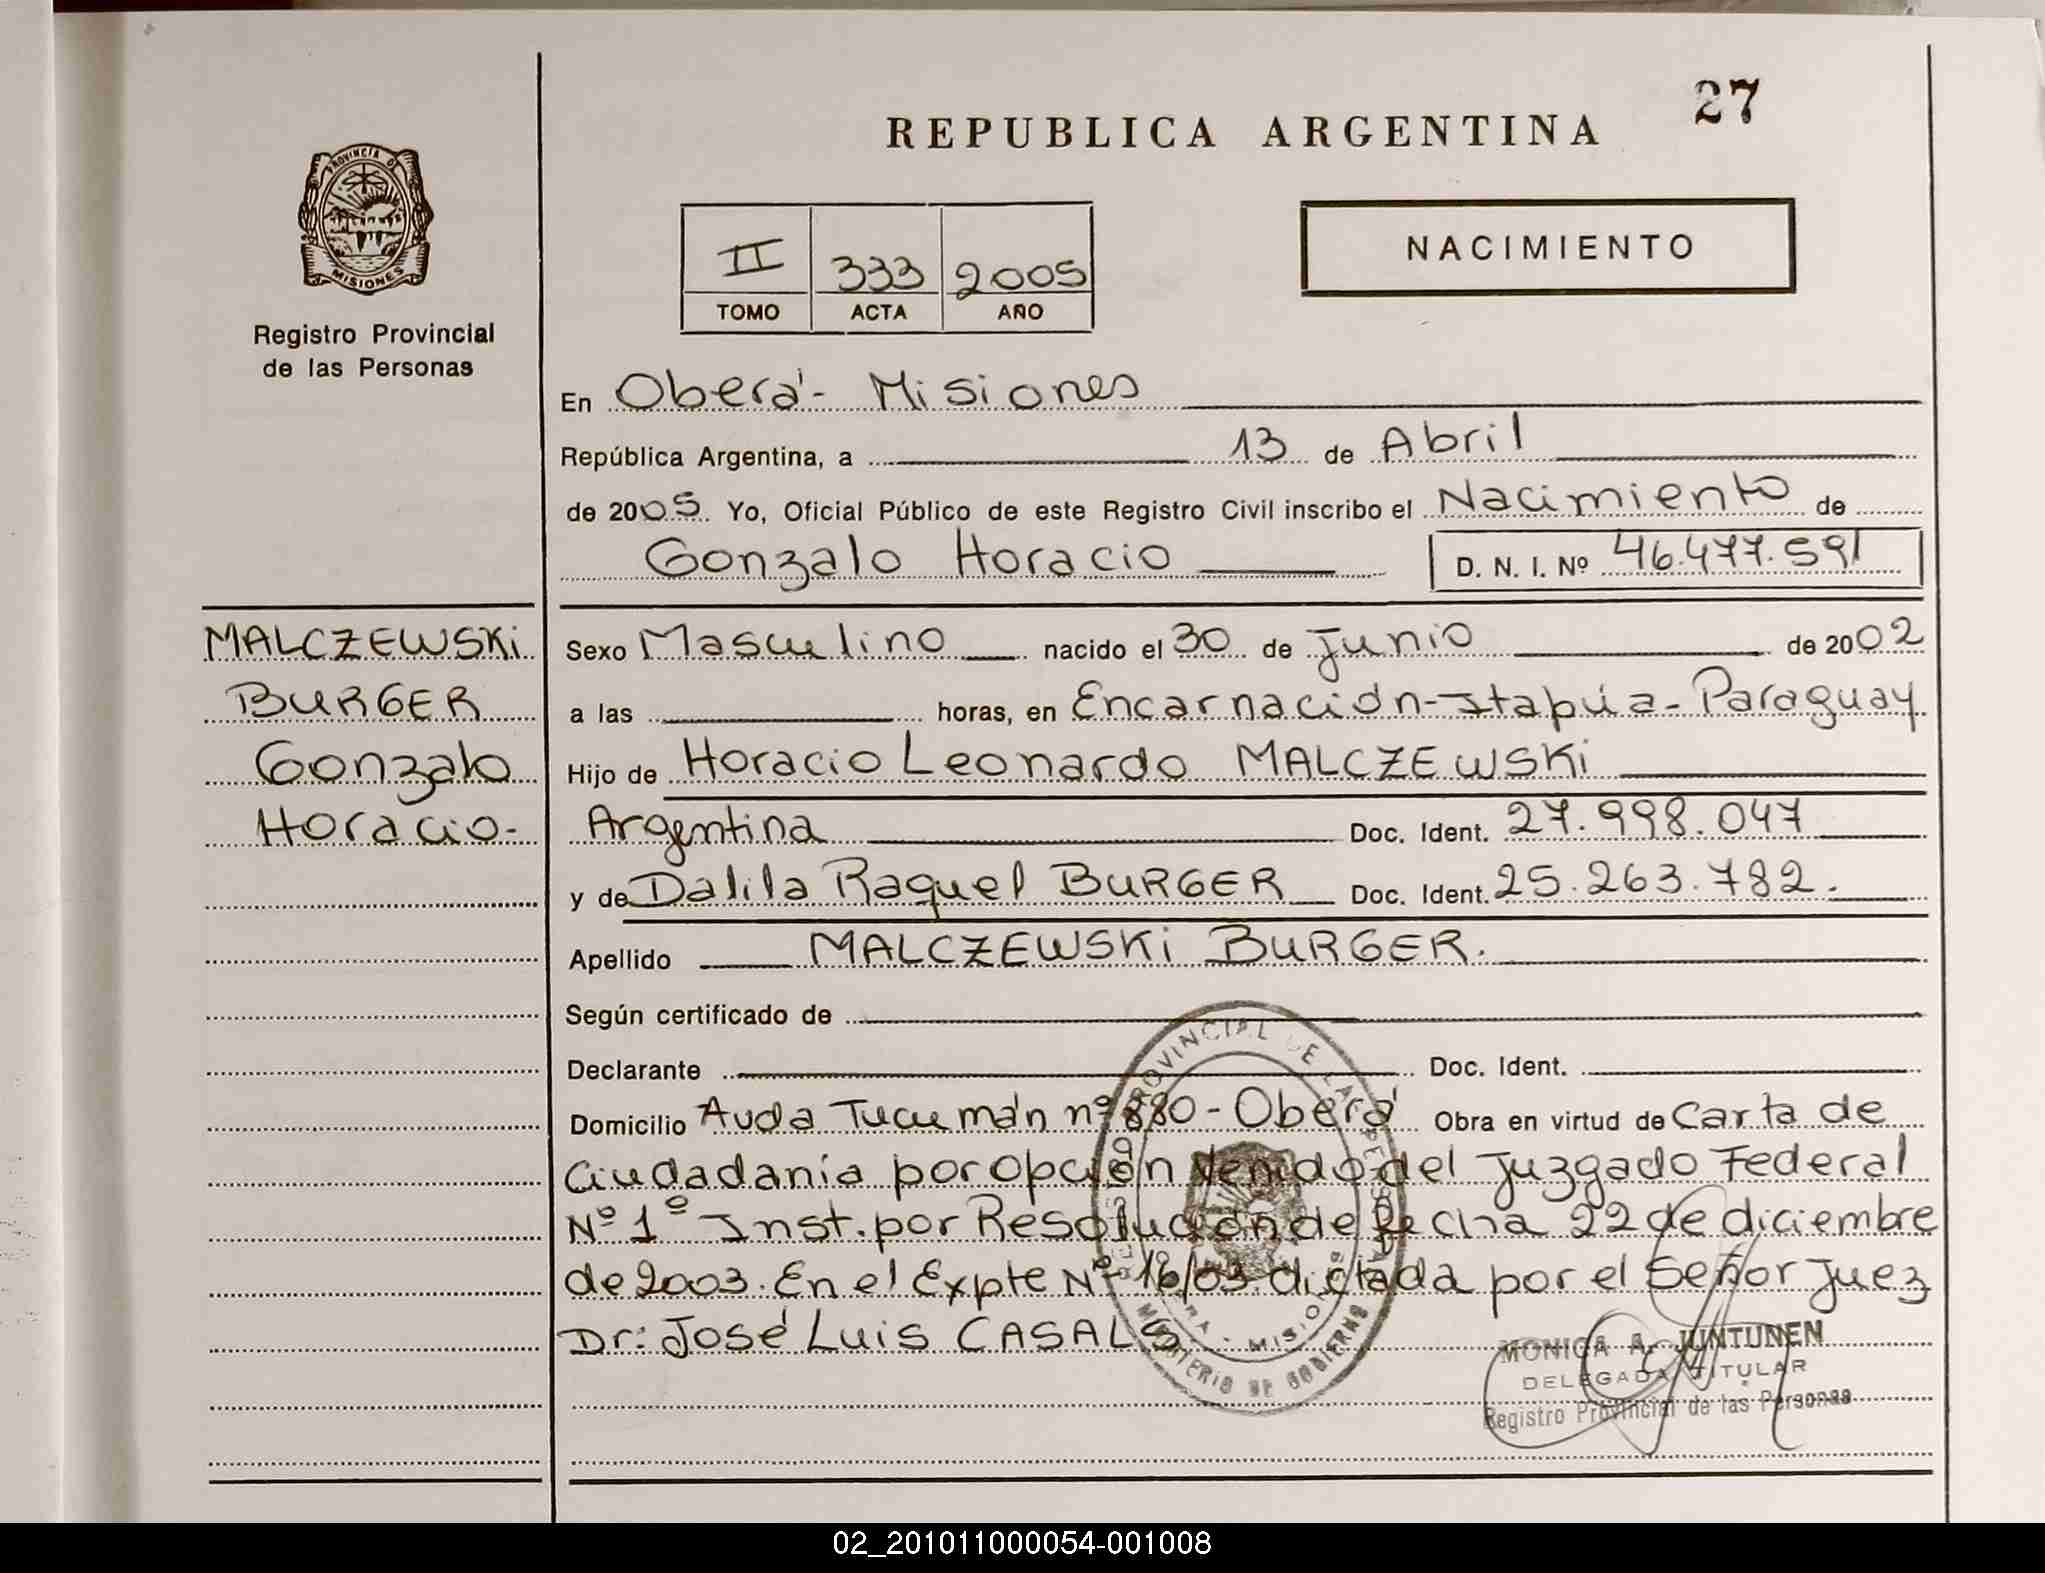 27
REPUBLICA ARGENTINA
PROVINCIA DE
MISIONES
Registro Provincial
de las Personas
II 333 2005
TOMO ACTA AÑO
NACIMIENTO
En Oberá - Misiones
República Argentina, a 13 de Abril
de 2005 Yo, Oficial Público de este Registro Civil inscribo el Nacimiento de
Gonzalo Horacio D. N. I. Nº 46.477.591
MALCZEWSKi
BURGER
Gonzalo
Horacio-
Sexo Masculino nacido el 30 de Junio de 2002
a las horas, en Encarnación-Itapúa-Paraguay
Hijo de Horacio Leonardo MALCZEWSKi
Argentina Doc. Ident. 27.998.047
y de Dalila Raquel BURGER Doc. Ident. 25.263.782.
Apellido MALCZEWSKi BURGER.
Según certificado de
Declarante Doc. Ident.
Domicilio Avda Tucumán nº 880 - Oberá Obra en virtud de Carta de
Ciudadanía por Opción venido del Juzgado Federal
Nº 1º Inst. por Resolución de fecha 22 de diciembre
de 2003. En el Expte Nº 16/03. dictada por el Señor Juez
Dr: José Luis CASALS
PROVINCIAL DE LAS PERSONAS
MINISTERIO DE GOBIERNO
MONICA A. JUNTUNEN
DELEGADA TITULAR
Registro Provincial de las Personas
02_201011000054-001008